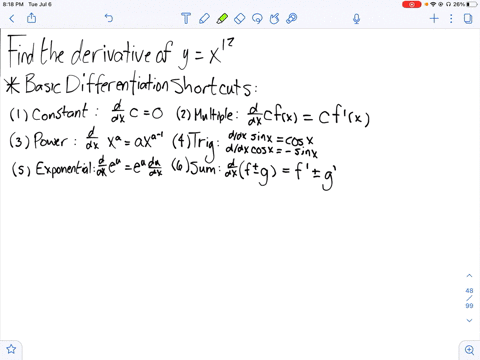 8:18 PM Tue Jul 6
26%
Find the derivative of y = x^12
* Basic Differentiation Shortcuts:
(1) Constant: d/dx c = 0 (2) Multiple: d/dx cf(x) = cf'(x)
(3) Power: d/dx x^a = ax^(a-1) (4) Trig: d/dx sinx = cosx
d/dx cosx = -sinx
(5) Exponential: d/dx e^u = e^u du/dx (6) Sum: d/dx (f ± g) = f' ± g'
48
/
99